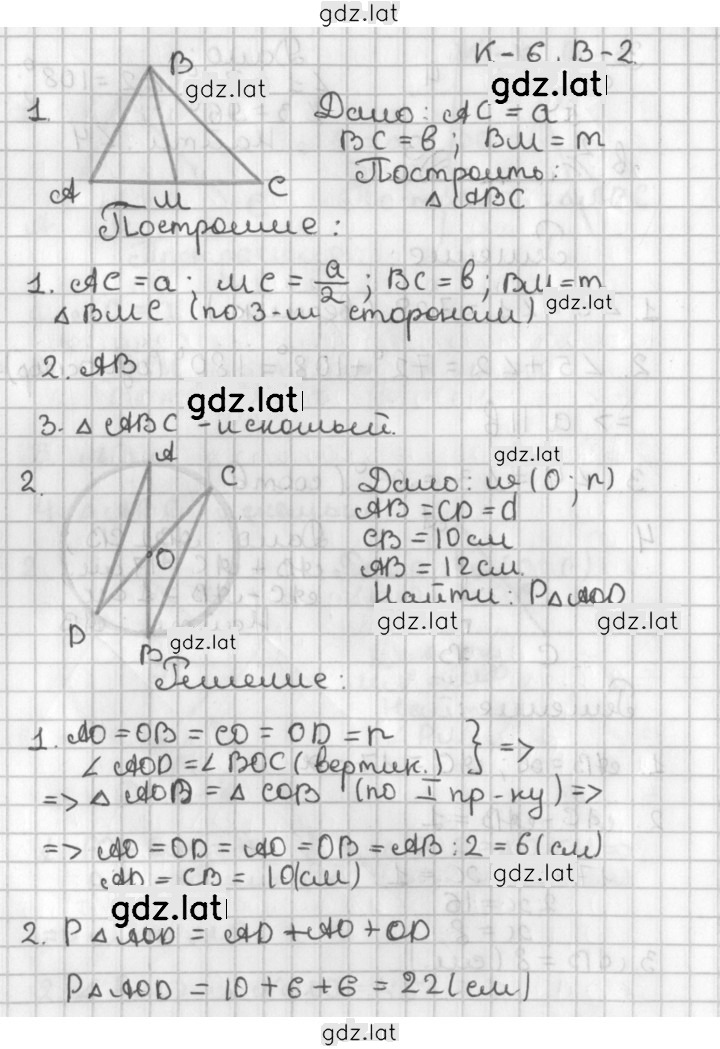 gdz.lat
К-6. В-2.
B
gdz.lat
gdz.lat
1.
Дано: AC = a
BC = в; BM = m
Построить:
A
M
C
△ ABC
Построение:
1. AC = a; MC = a/2; BC = в; BM = m
gdz.lat
△ BMC (по 3-м сторонам)
2. AB
gdz.lat
3. △ ABC - искомый.
A
gdz.lat
2.
C
Дано: w (O; r)
AB = CD = d
CB = 10 см
O
AB = 12 см.
Найти: P△AOD
D
gdz.lat
gdz.lat
B
gdz.lat
Решение:
1. AO = OB = CO = OD = r
∠ AOD = ∠ BOC (вертик.) } =>
=> △ AOD = △ COB (по I пр-ку) =>
=> AO = OD = AO = OB = AB : 2 = 6 (см)
AD = CB = 10 (см)
gdz.lat
gdz.lat
2. P△AOD = AD + AO + OD
P△AOD = 10 + 6 + 6 = 22 (см)
gdz.lat